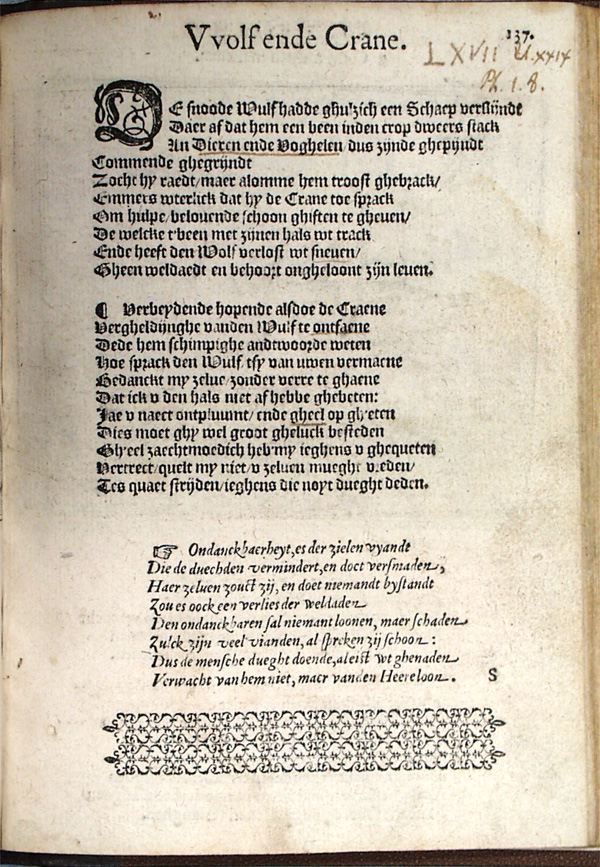 Vvolf ende Crane.
137.
LXVII
Ph. 1. 8.
DE snoode Wulf hadde ghu'zich een Schaep verslijndt
Daer af dat hem een been inden crop dweers stack
An Dieren ende Voghelen/ dus zijnde ghepijndt
Commende ghegrijndt
Zocht hy raedt/ maer alomme hem troost ghebrack/
Emmers wterlick dat hy de Crane toe sprack
Om hulpe/ belovende schoon ghiften te gheven/
De welcke t'been met zijnen hals wt track
Ende heeft den Wolf verlost wt sneven/
Gheen weldaedt en behoort ongheloont zijn leven.
¶ Verbeydende hopende alsdoe de Craene
Vergheldijnghe vanden Wulf te ontfaene
Dede hem schimpighe andtwoorde weten
Hoe sprack den Wulf/ tsy van uwen vermaene
Ghedanckt my zelve/ zonder verre te ghaene
Dat ick v den hals niet af hebbe ghebeten:
Jae v naect ontpluumt/ ende gheel op gheten
Dies moet ghy wel groot gheluck besteden
Gheel zaechtmoedich heb my ieghens v ghequeten
Vertrect/ quelt my niet/ v zelven mueght vreden/
Tes quaet strijden/ ieghens die noyt dueght deden.
☞ Ondanckbaerheyt, es der zielen vyandt
Die de duechden vermindert, en doet versmaden,
Haer zelven zouct zij, en doet niemandt bystandt
Zou es oock een verlies der weldaden
Den ondanckbaren sal niemant loonen, maer schaden
Zulck zijn veel vianden, al spreken zij schoon:
Dus de mensche dueght doende, aleist wt ghenaden
Verwacht van hem niet, maer vanden Heere loon.
S